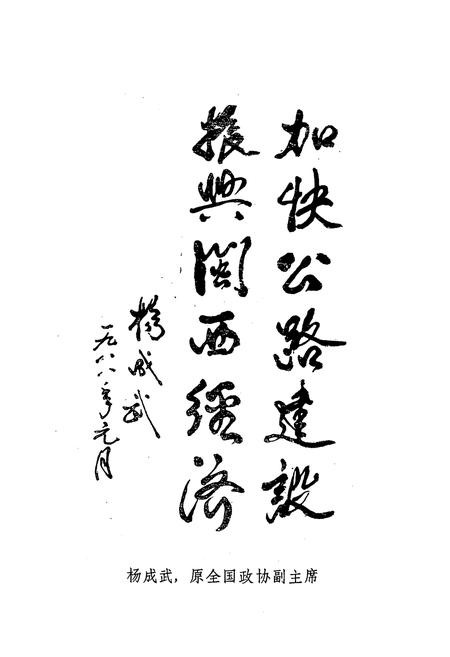 加快公路建设
振興闽西经济
楊成武
一九八八年元月
杨成武，原全国政协副主席